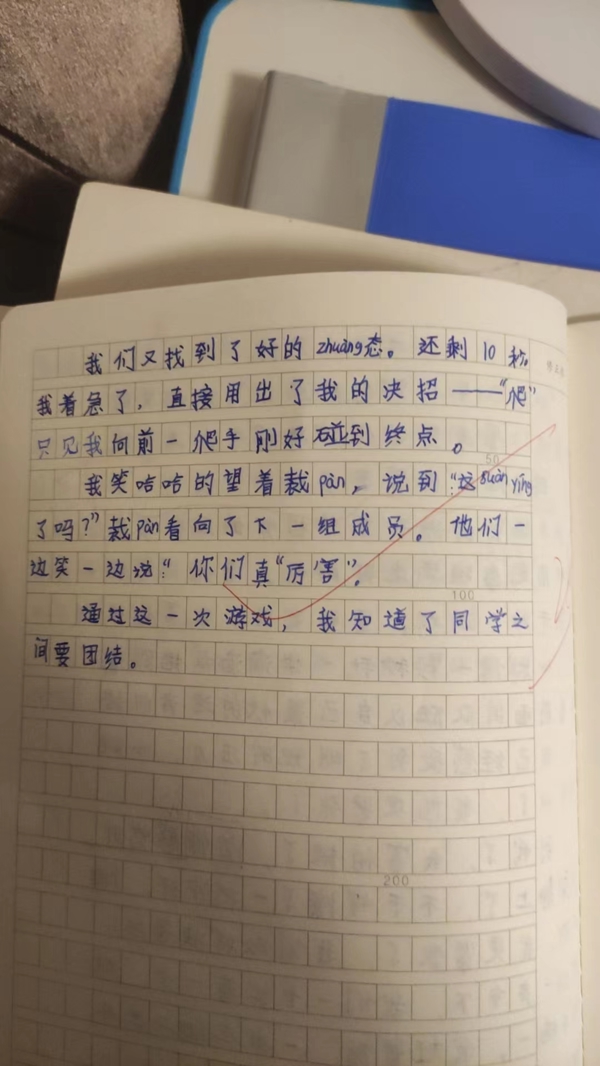 我们又找到了好的zhuàng态。还剩10秒。
我着急了，直接用出了我的决招——“爬”
只见我向前一爬手刚好碰到终点。
50
我笑哈哈的望着裁pàn，说到“这suàn yíng
了吗？”裁pàn看向了下一组成员。他们一
边笑一边说：“你们真“厉害”。
100
通过这一次游戏，我知道了同学之
间要团结。
200